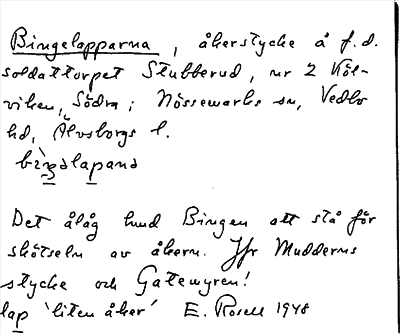 Bingelapparna, åkerstycke å f.d.
soldattorpet Stubberud, nr 2 Köl-
viken, Södra; Nössemarks sn, Vedbo
hd, Älvsborgs l.
bìŋəlapana
Det ålåg hund Bingen att stå för
skötseln av åkern. Jfr Mudderns
stycke och Gatemyren!
lap 'liten åker' E. Rosell 1948